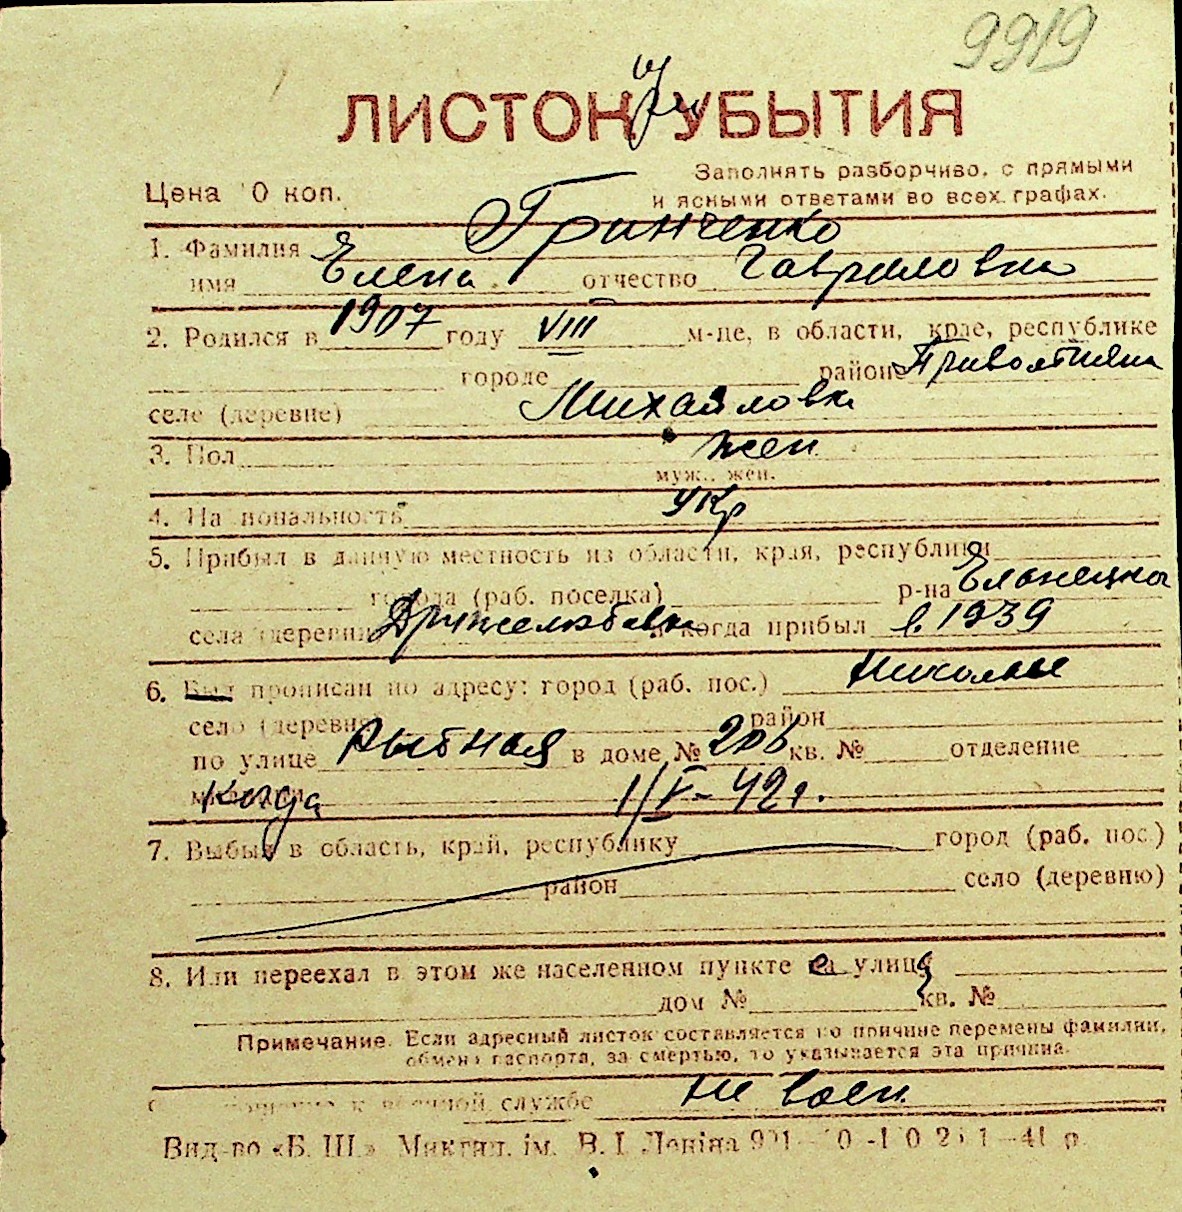 9919
ЛИСТОК УБЫТИЯ
Цена 10 коп.
Заполнять разборчиво, с прямыми
и ясными ответами во всех графах.
1. Фамилия Гринченко
имя Елена отчество Гавриловна
2. Родился в 1907 году VIII м-це, в области, крае, республике
городе районе
селе (деревне) Михайловка
3. Пол жен
муж., жен.
4. Национальность Укр
5. Прибыл в данную местность из области, края, республики
города (раб. поселка) р-на Еланецкого
села (деревни) и когда прибыл в 1939
6. Был прописан по адресу: город (раб. пос.) Николаев
село (деревня) район
по улице Рыбная в доме № кв. № отделение
Когда 1/V-42г.
7. Выбыл в область, край, республику город (раб. пос.)
район село (деревню)
8. Или переехал в этом же населенном пункте на улицу
дом № кв. №
Примечание. Если адресный листок составляется по причине перемены фамилии,
обмена паспорта, за смертью, то указывается эта причина.
к военной службе не воен.
Вид-во «Б. Ш.» Микгил. ім. В. І. Леніна